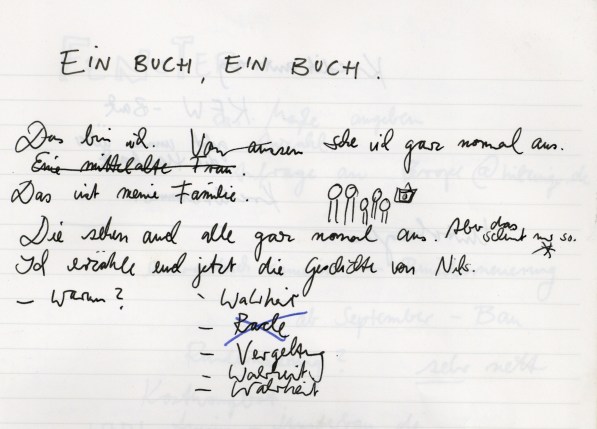 EIN BUCH, EIN BUCH.
Das bin ich. Von aussen sehe ich ganz normal aus.
Eine mittelalte Frau.
Das ist meine Familie.
Die sehen auch alle ganz normal aus. Aber das scheint nur so.
Ich erzähle euch jetzt die Geschichte von Nils.
– Warum?
– Wahrheit
– Rache
– Vergeltung
– Wahrheit
– Wahrheit